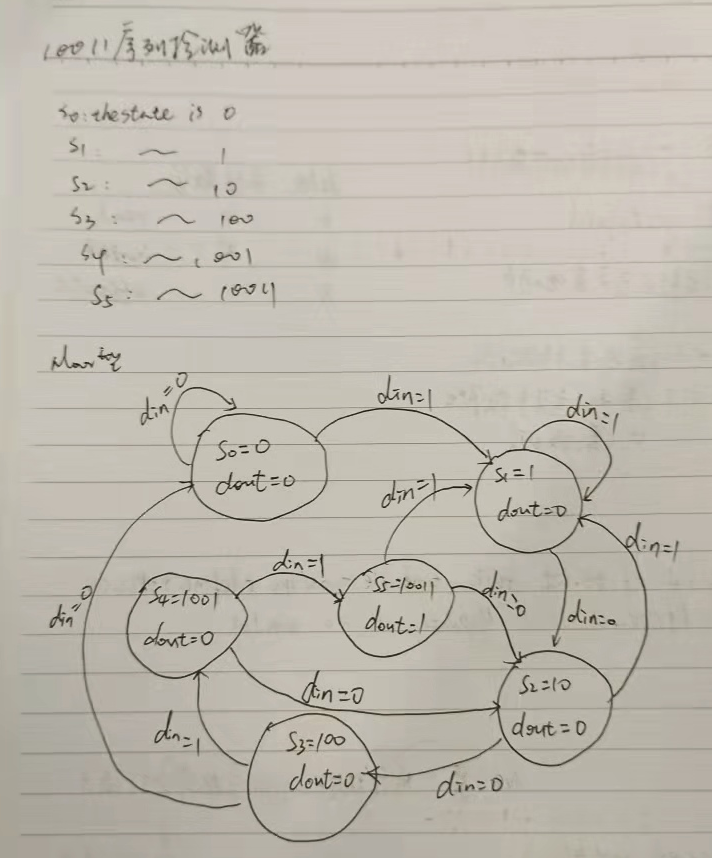 10011序列检测器
S0: the state is 0
S1: ~ 1
S2: ~ 10
S3: ~ 100
S4: ~ 1001
S5: ~ 10011
din=0
din=1
din=1
S0=0
dout=0
din=1
S1=1
dout=0
din=1
din=0
S4=1001
dout=0
din=1
S5=10011
dout=1
din=0
din=0
din=0
S2=10
dout=0
din=1
S3=100
dout=0
din=0